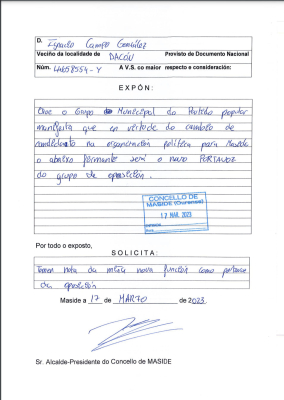 D. Ignacio Campo González
Veciño da localidade de DACÓN Provisto de Documento Nacional
Núm. A V.S. co maior respecto e consideración:
EXPÓN:
Que o Grupo Municipal do Partido popular
manifesta que en virtude do cambio de
candidato na organización política para Maside
o abaixo firmante será o novo PORTAVOZ
do grupo da oposición.
CONCELLO DE
MASIDE (Ourense)
17 MAR. 2023
Por todo o exposto,
SOLICITA:
Tomen nota da miña nova función como portavoz
da oposición
Maside a 17 de MARZO de 2023
Sr. Alcalde-Presidente do Concello de MASIDE